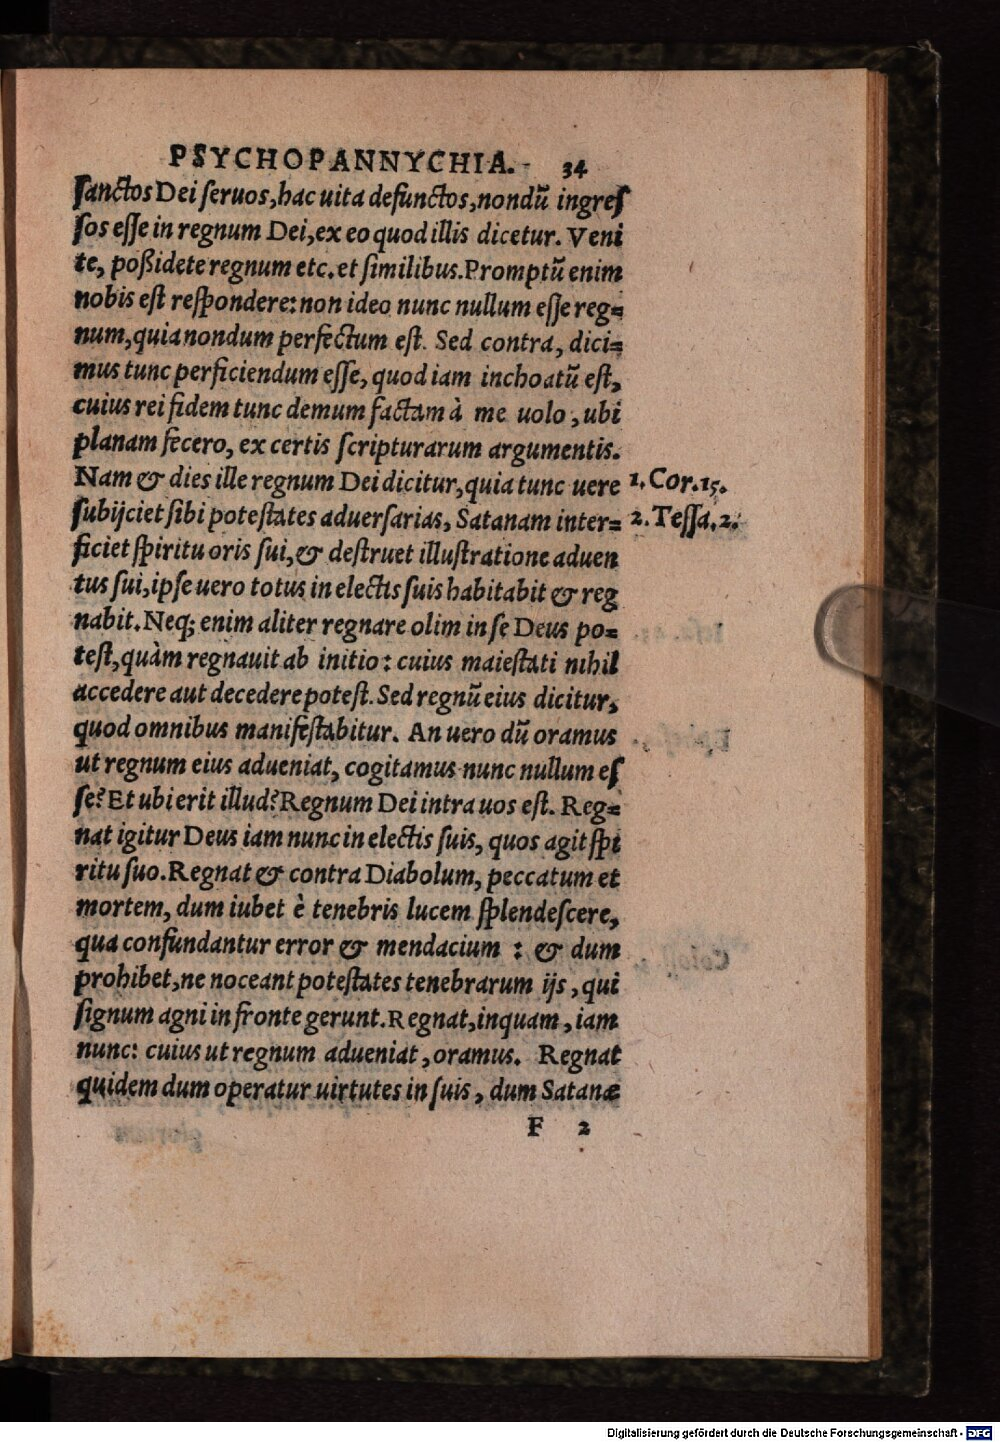 PSYCHOPANNYCHIA. 34
sanctos Dei seruos, hac uita defunctos, nondũ ingres
sos esse in regnum Dei, ex eo quod illis dicetur. Veni
te, poßidete regnum etc. et similibus. Promptũ enim
nobis est respondere: non ideo nunc nullum esse reg=
num, quia nondum perfectum est. Sed contra, dici=
mus tunc perficiendum esse, quod iam inchoatũ est,
cuius rei fidem tunc demum factam à me uolo, ubi
planam fecero, ex certis scripturarum argumentis.
Nam & dies ille regnum Dei dicitur, quia tunc uere 1. Cor. 15.
subijciet sibi potestates aduersarias, Satanam inter= 2. Tessa. 2.
ficiet spiritu oris sui, & destruet illustratione aduen
tus sui, ipse uero totus in electis suis habitabit & reg
nabit. Neq; enim aliter regnare olim in se Deus po=
test, quàm regnauit ab initio: cuius maiestati nihil
accedere aut decedere potest. Sed regnũ eius dicitur,
quod omnibus manifestabitur. An uero dũ oramus
ut regnum eius adueniat, cogitamus nunc nullum es
se? Et ubi erit illud? Regnum Dei intra uos est. Reg=
nat igitur Deus iam nunc in electis suis, quos agit spi
ritu suo. Regnat & contra Diabolum, peccatum et
mortem, dum iubet è tenebris lucem splendescere,
qua confundantur error & mendacium : & dum
prohibet, ne noceant potestates tenebrarum ijs, qui
signum agni in fronte gerunt. Regnat, inquam, iam
nunc: cuius ut regnum adueniat, oramus. Regnat
quidem dum operatur uirtutes in suis, dum Satanæ
F 2
Digitalisierung gefördert durch die Deutsche Forschungsgemeinschaft - DFG